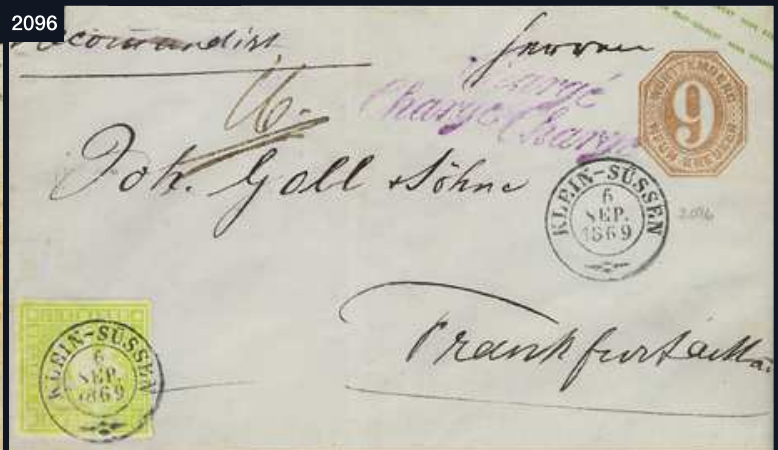 2096
Recomandirt Herren
Chargé
Chargé Chargé
16.
WÜRTTEMBERG
9
NEUN KREUZER
Joh. Goll & Söhne
KLEIN-SÜSSEN
6
SEP.
1869
2096
Frankfurt a/Main
KLEIN-SÜSSEN
6
SEP.
1869